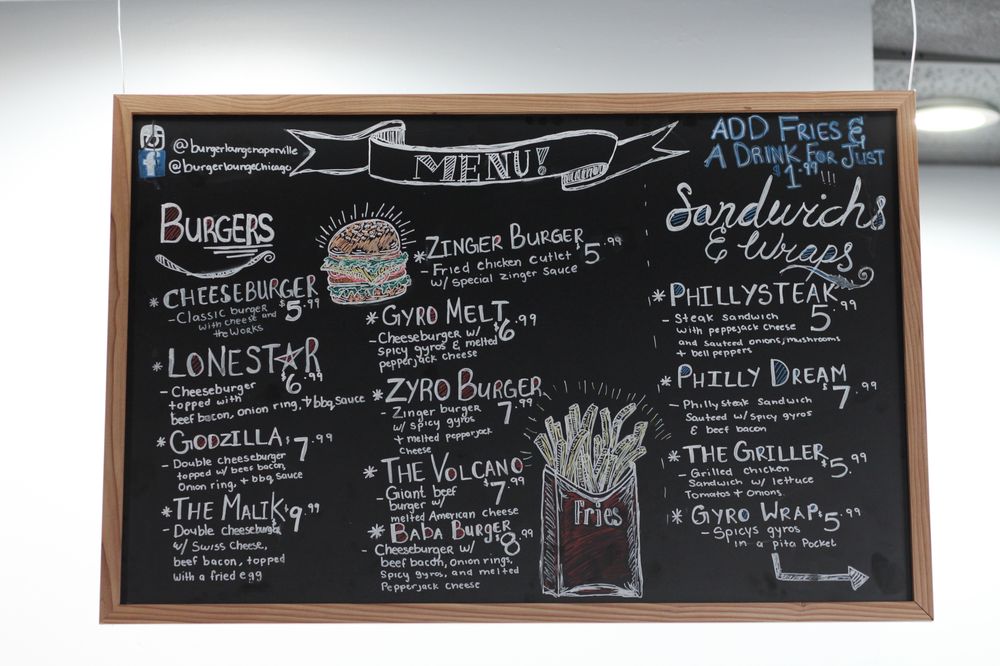 @burgerloungenaperville
@burgerloungeChicago
MENU!
ADD FRIES &
A DRINK FOR JUST
$1.99!!!
BURGERS
* CHEESEBURGER $5.99
- Classic burger
with cheese and
the WORKS
* LONESTAR $6.99
- Cheeseburger
topped with
beef bacon, onion ring, + bbq sauce
* GODZILLA $7.99
- Double cheeseburger
topped w/ beef bacon,
Onion ring, + bbq sauce
* THE MALIK $9.99
- Double cheeseburger
w/ Swiss Cheese,
beef bacon, topped
with a fried egg
* ZINGER BURGER $5.99
- Fried chicken cutlet
w/ special zinger sauce
* GYRO MELT $6.99
- Cheeseburger w/
Spicy gyros & melted
pepperjack cheese
* ZYRO BURGER 7.99
- Zinger burger
w/ spicy gyros
+ melted pepperjack
cheese
* THE VOLCANO $7.99
- Giant beef
burger w/
melted American cheese
* BABA BURGER $8.99
- Cheeseburger w/
beef bacon, onion rings,
Spicy gyros, and melted
Pepperjack cheese
Fries
Sandwichs
& Wraps
* PHILLYSTEAK $5.99
- Steak sandwich
with pepperjack cheese
and sauteed onions, mushrooms
+ bell peppers
* PHILLY DREAM $7.99
- Philly steak sandwich
Sauteed w/ spicy gyros
& beef bacon
* THE GRILLER $5.99
- Grilled chicken
Sandwich w/ lettuce
Tomatos + onions
* GYRO WRAP $5.99
- Spicys gyros
in a pita Pocket